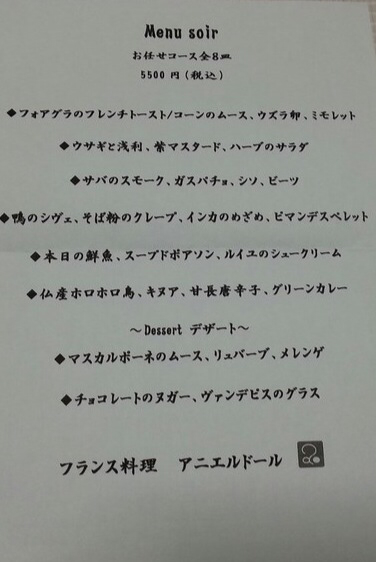 Menu soir
お任せコース全8皿
5500円(税込)
◆フォアグラのフレンチトースト/コーンのムース、ウズラ卵、ミモレット
◆ウサギと浅利、紫マスタード、ハーブのサラダ
◆サバのスモーク、ガスパチョ、シソ、ビーツ
◆鴨のシヴェ、そば粉のクレープ、インカのめざめ、ピマンデスペレット
◆本日の鮮魚、スープドポアソン、ルイユのシュークリーム
◆仏産ホロホロ鳥、キヌア、甘長唐辛子、グリーンカレー
～Dessert デザート～
◆マスカルポーネのムース、リュバーブ、メレンゲ
◆チョコレートのヌガー、ヴァンデピスのグラス
フランス料理 アニエルドール